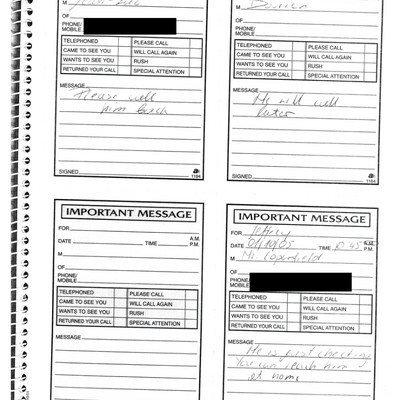 M Jean-Luc
OF
PHONE/
MOBILE
TELEPHONED PLEASE CALL
CAME TO SEE YOU WILL CALL AGAIN
WANTS TO SEE YOU RUSH
RETURNED YOUR CALL SPECIAL ATTENTION
MESSAGE Please call
him back
SIGNED 1184
M
OF
PHONE/
MOBILE
TELEPHONED PLEASE CALL
CAME TO SEE YOU WILL CALL AGAIN
WANTS TO SEE YOU RUSH
RETURNED YOUR CALL SPECIAL ATTENTION
MESSAGE
He will call
later
SIGNED 1184
IMPORTANT MESSAGE
FOR
DATE TIME A.M.
P.M.
M
OF
PHONE/
MOBILE
TELEPHONED PLEASE CALL
CAME TO SEE YOU WILL CALL AGAIN
WANTS TO SEE YOU RUSH
RETURNED YOUR CALL SPECIAL ATTENTION
MESSAGE
IMPORTANT MESSAGE
FOR Jeffrey
DATE TIME 10:45 A.M.
P.M.
M Mr. Coperfield
OF
PHONE/
MOBILE
TELEPHONED PLEASE CALL
CAME TO SEE YOU WILL CALL AGAIN
WANTS TO SEE YOU RUSH
RETURNED YOUR CALL SPECIAL ATTENTION
MESSAGE
He is just checking
You can reach him
at home